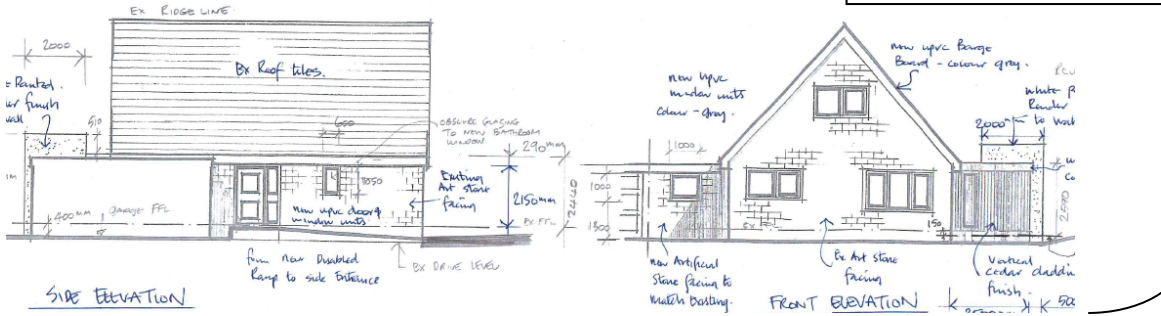 EX RIDGE LINE
2000
Ex Roof tiles.
Planted.
finish
wall
510
600
OBSCURE GLAZING
TO NEW BATHROOM
WINDOW
290mm
1050
Existing
Art stone
facing
2150mm
2440
Ex FFL
new upvc door &
window units
400mm
garage FFL
form new Disabled
Ramp to side Entrance
EX DRIVE LEVEL
SIDE ELEVATION
new upvc Barge
Board - colour gray.
new upvc
window units
Colour - gray.
White
Render
to
2000
1000
1000
1500
150
new Artificial
Stone facing to
match Existing.
Ex Art stone
facing
Vertical
cedar
finish.
FRONT ELEVATION